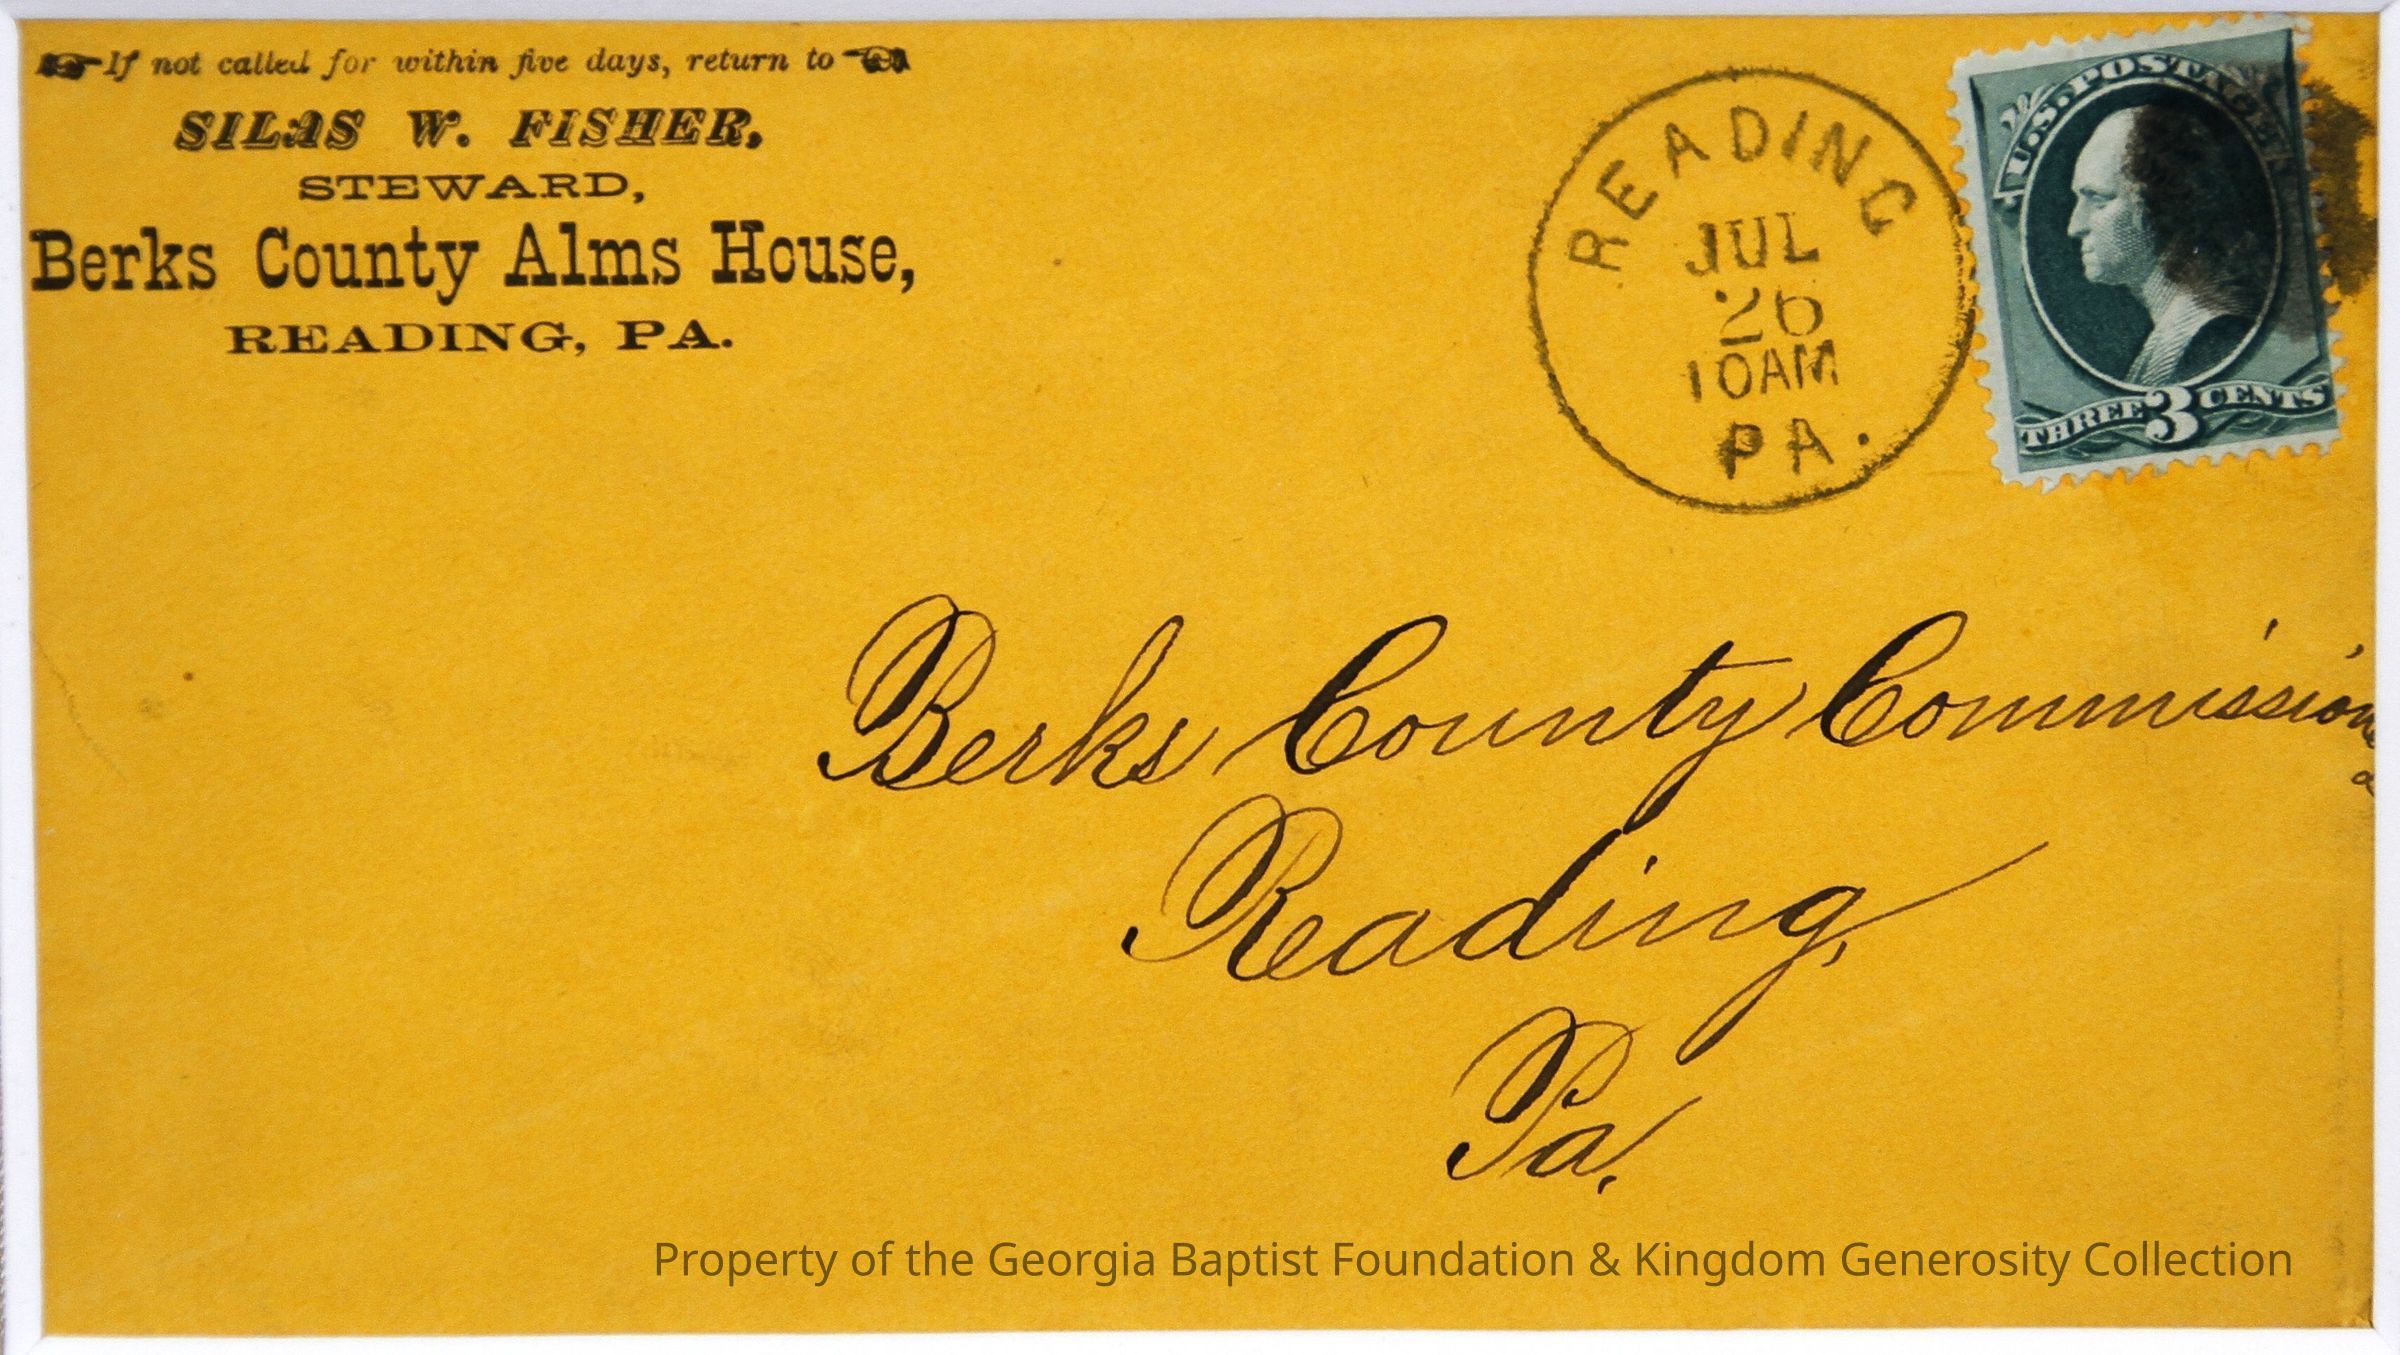 If not called for within five days, return to
SILAS W. FISHER,
STEWARD,
Berks County Alms House,
READING, PA.
READING
JUL
26
10AM
PA.
U.S. POSTAGE
THREE 3 CENTS
Berks County Commissione
Reading,
Pa.
Property of the Georgia Baptist Foundation & Kingdom Generosity Collection